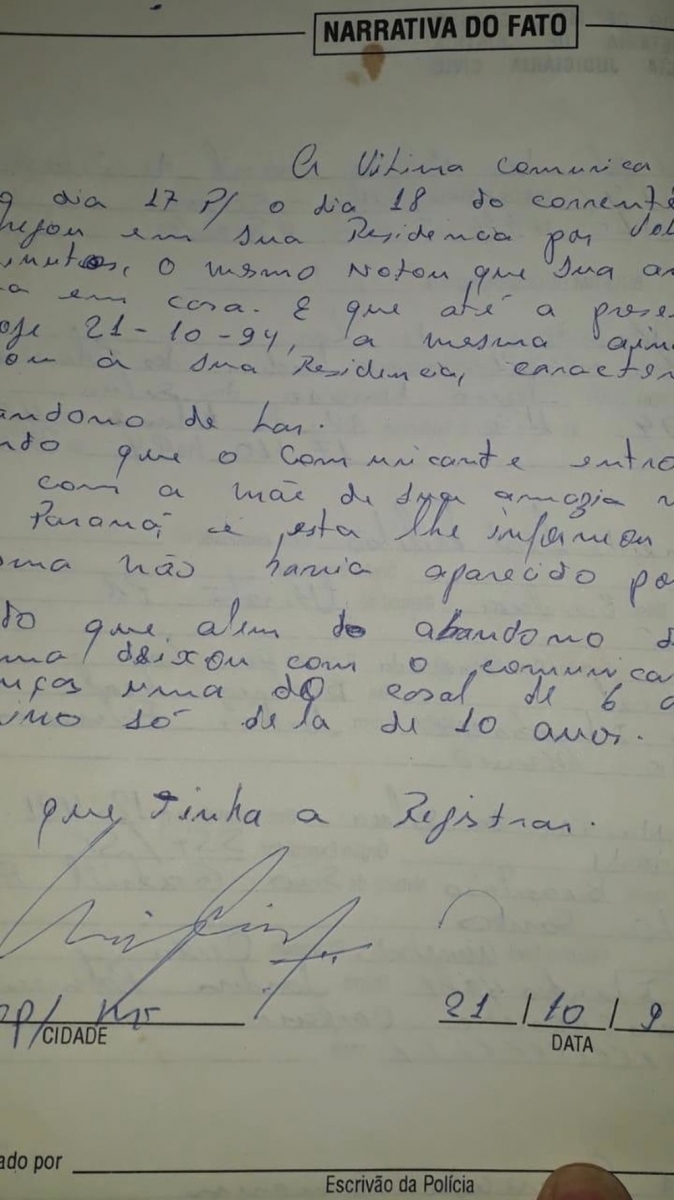 NARRATIVA DO FATO
A Vitima comunica
dia 17 P/ o dia 18 do corrente
em sua Residencia por
o mesmo Notou que sua
em casa. E que até a prese
21-10-94, a mesma
à sua Residencia, caracter
andono de Lar.
ndo que o Comunicante entro
com a mãe de sua amazia
Paraná, e esta lhe informou
não havia aparecido po
do que, alem do abandono d
deixou com o comunica
nças uma do casal de 6 a
só dela de 10 anos.
que tinha a Registrar.
21 / 10 / 9
CIDADE
DATA
ado por
Escrivão da Polícia